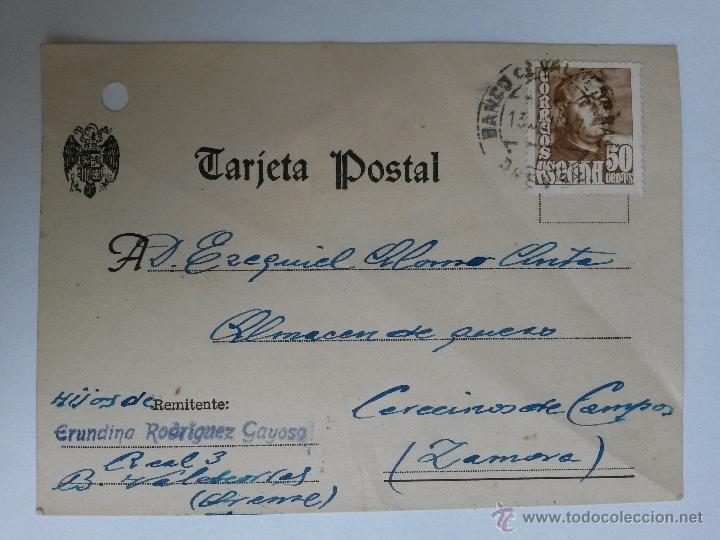 BANCO
CORREOS
50
ESPAÑA CENTMS
Tarjeta Postal
A D. Ezequiel Alonso
Almacen de queso
Cerecinos de Campos
(Zamora)
Hijos de
Remitente:
Erundina Rodriguez Gayoso
Real 3
B. Valdeorras
(Orense)
www.todocoleccion.net